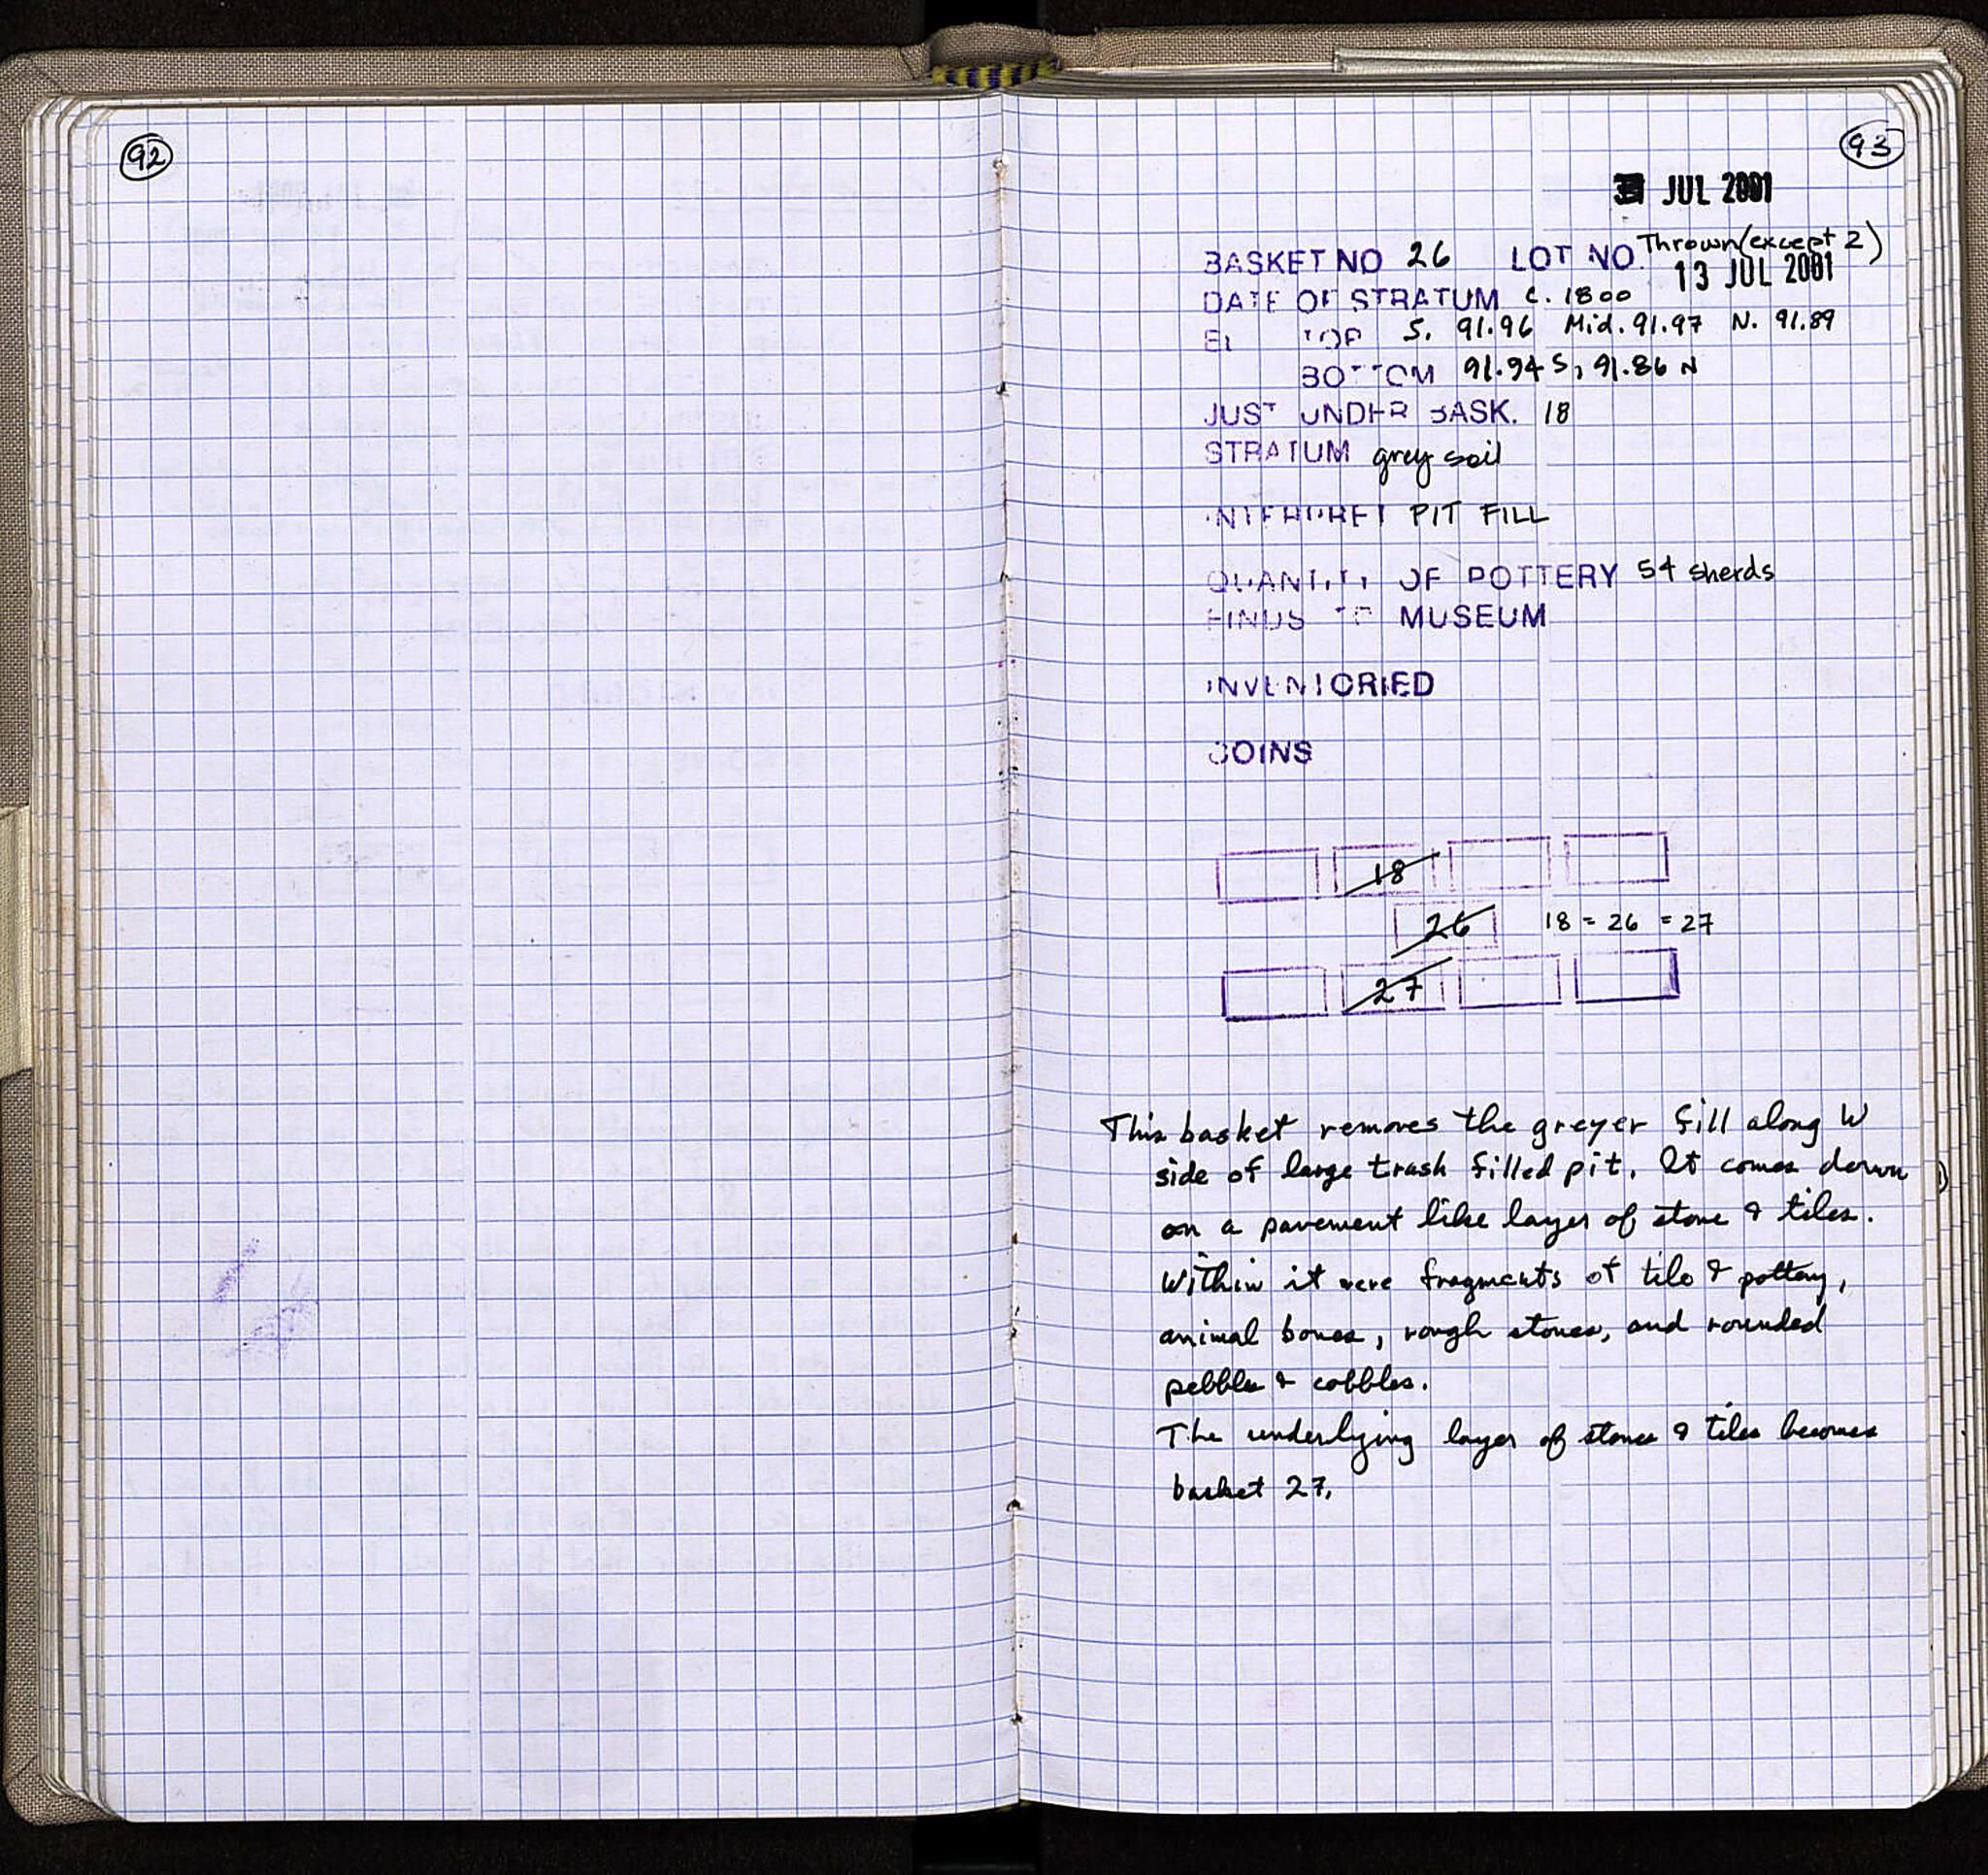 92
93
JUL 2001
BASKET NO 26 LOT NO. Thrown (except 2)
13 JUL 2001
DATE OF STRATUM c. 1800
EL TOP S. 91.96 Mid. 91.97 N. 91.89
BOTTOM 91.94 S, 91.86 N
JUST UNDER BASK. 18
STRATUM grey soil
INTERPRET PIT FILL
QUANTITY OF POTTERY 54 sherds
FINDS TO MUSEUM
INVENTORIED
COINS
18
26 18 = 26 = 27
27
This basket removes the greyer fill along W
side of large trash filled pit. It comes down
on a pavement like layer of stone & tiles.
Within it were fragments of tile & pottery,
animal bones, rough stones, and rounded
pebbles & cobbles.
The underlying layer of stones & tiles becomes
basket 27.